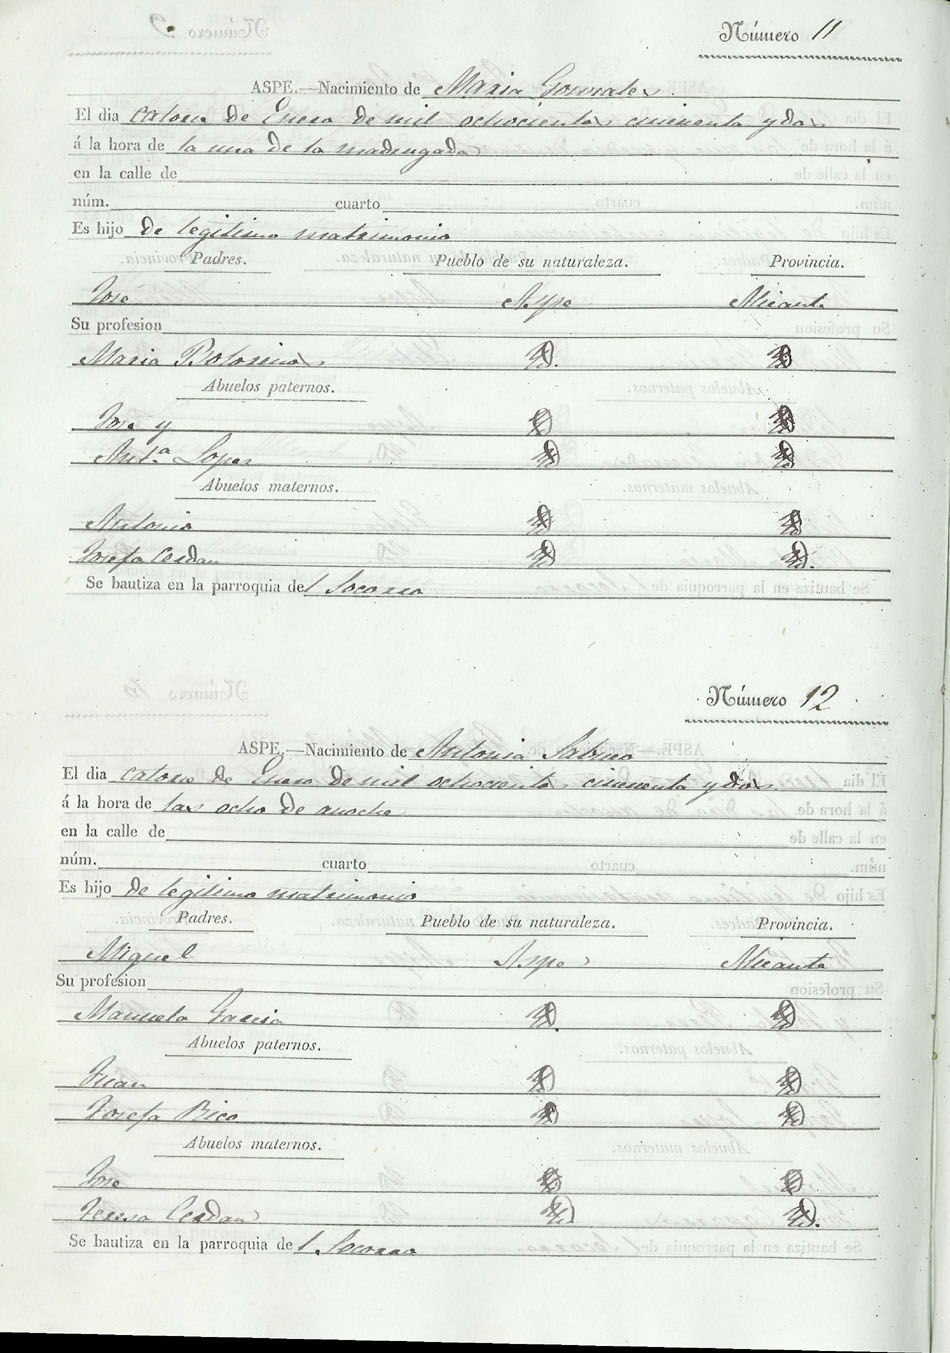 Número 11
ASPE.—Nacimiento de Maria Gonzales
El dia catorse de Enero de mil ochocientos cincuenta y dos
á la hora de la una de la madrugada
en la calle de
núm. cuarto
Es hijo de legitimo matrimonio
Padres. Pueblo de su naturaleza. Provincia.
Jose Aspe Alicante
Su profesion
Maria Botorino
Abuelos paternos.
Jose y
Ant.ª Lopes
Abuelos maternos.
Antonio
Josefa Cerdan
Se bautiza en la parroquia del Socorro
Número 12
ASPE.—Nacimiento de Antonia Sabino
El dia catorse de Enero de mil ochocientos cincuenta y dos
á la hora de las ocho de anoche
en la calle de
núm. cuarto
Es hijo de legitimo matrimonio
Padres. Pueblo de su naturaleza. Provincia.
Miguel Aspe Alicante
Su profesion
Manuela Garcia
Abuelos paternos.
Juan
Josefa Rico
Abuelos maternos.
Jose
Teresa Cerdan
Se bautiza en la parroquia del Socorro